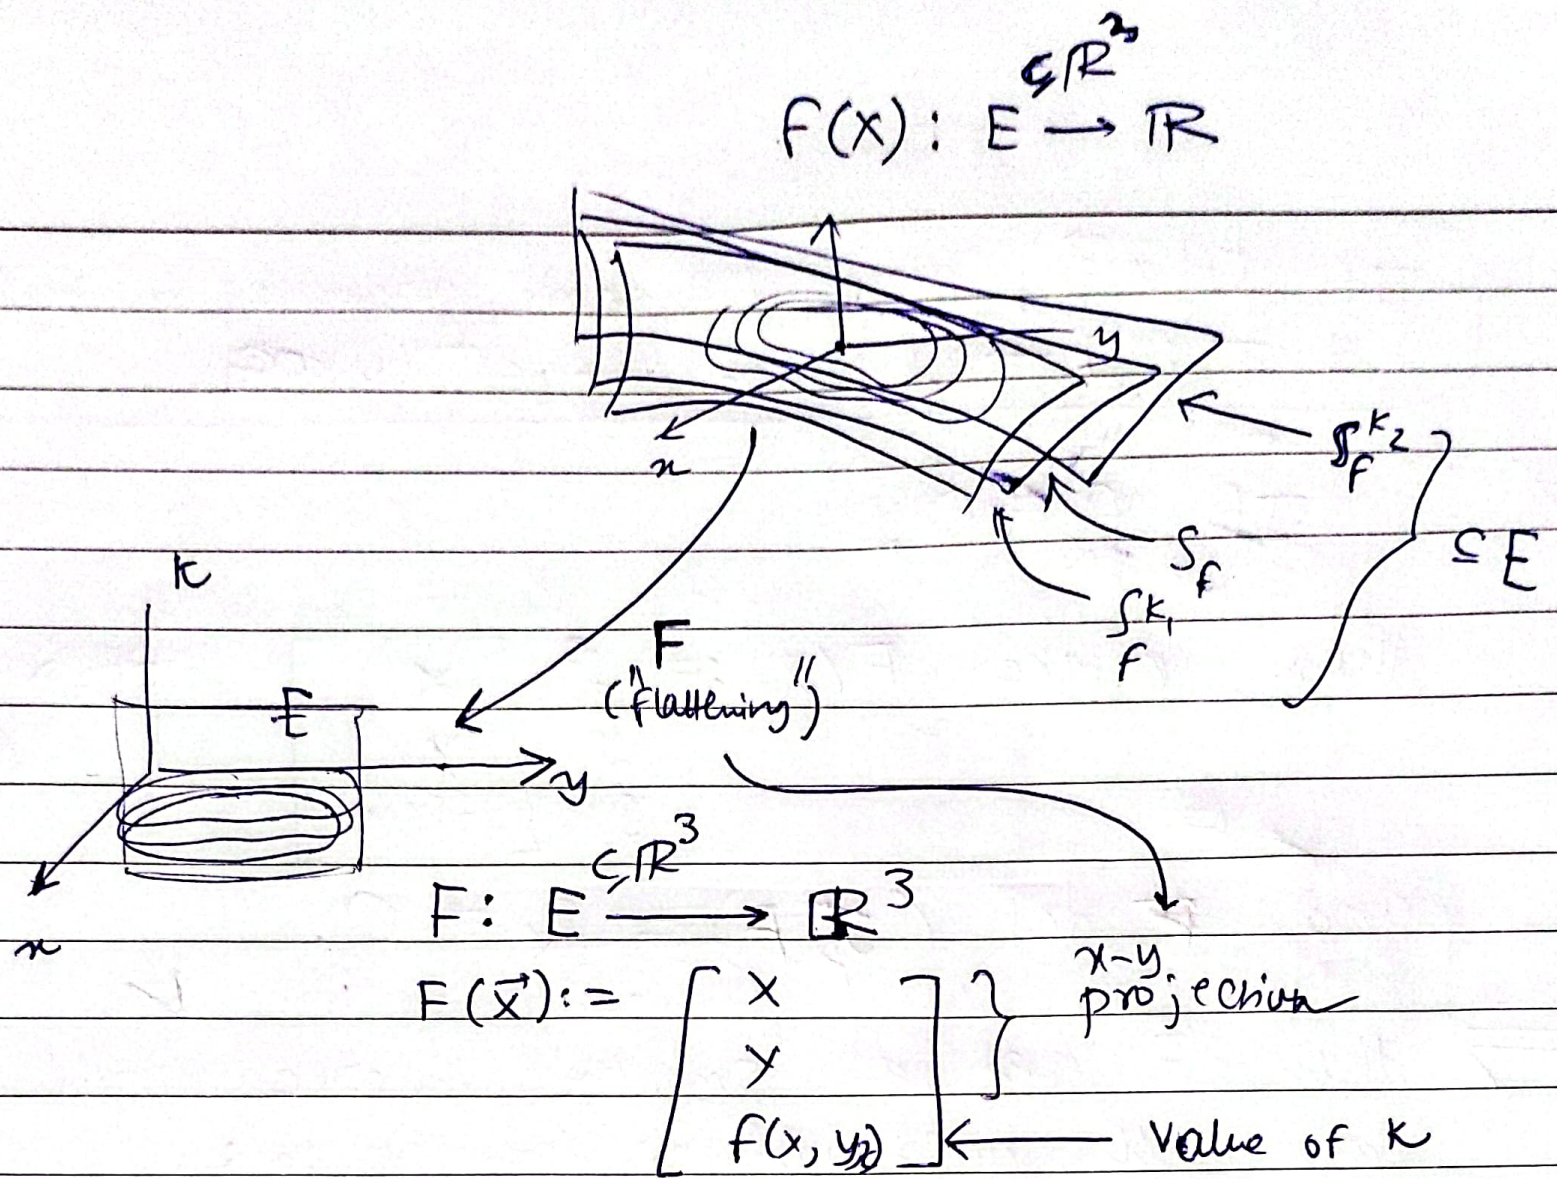 F(X): E ⟶ ℝ
⊆ℝ³
y
x
S_f^{k_2}
S_f
⊆ E
S_f^{k_1}
k
F
("flattening")
E
y
x
F: E ⟶ ℝ³
⊆ℝ³
F(x⃗) := [ x
y
f(x, y, z) ]
x-y
projection
value of k